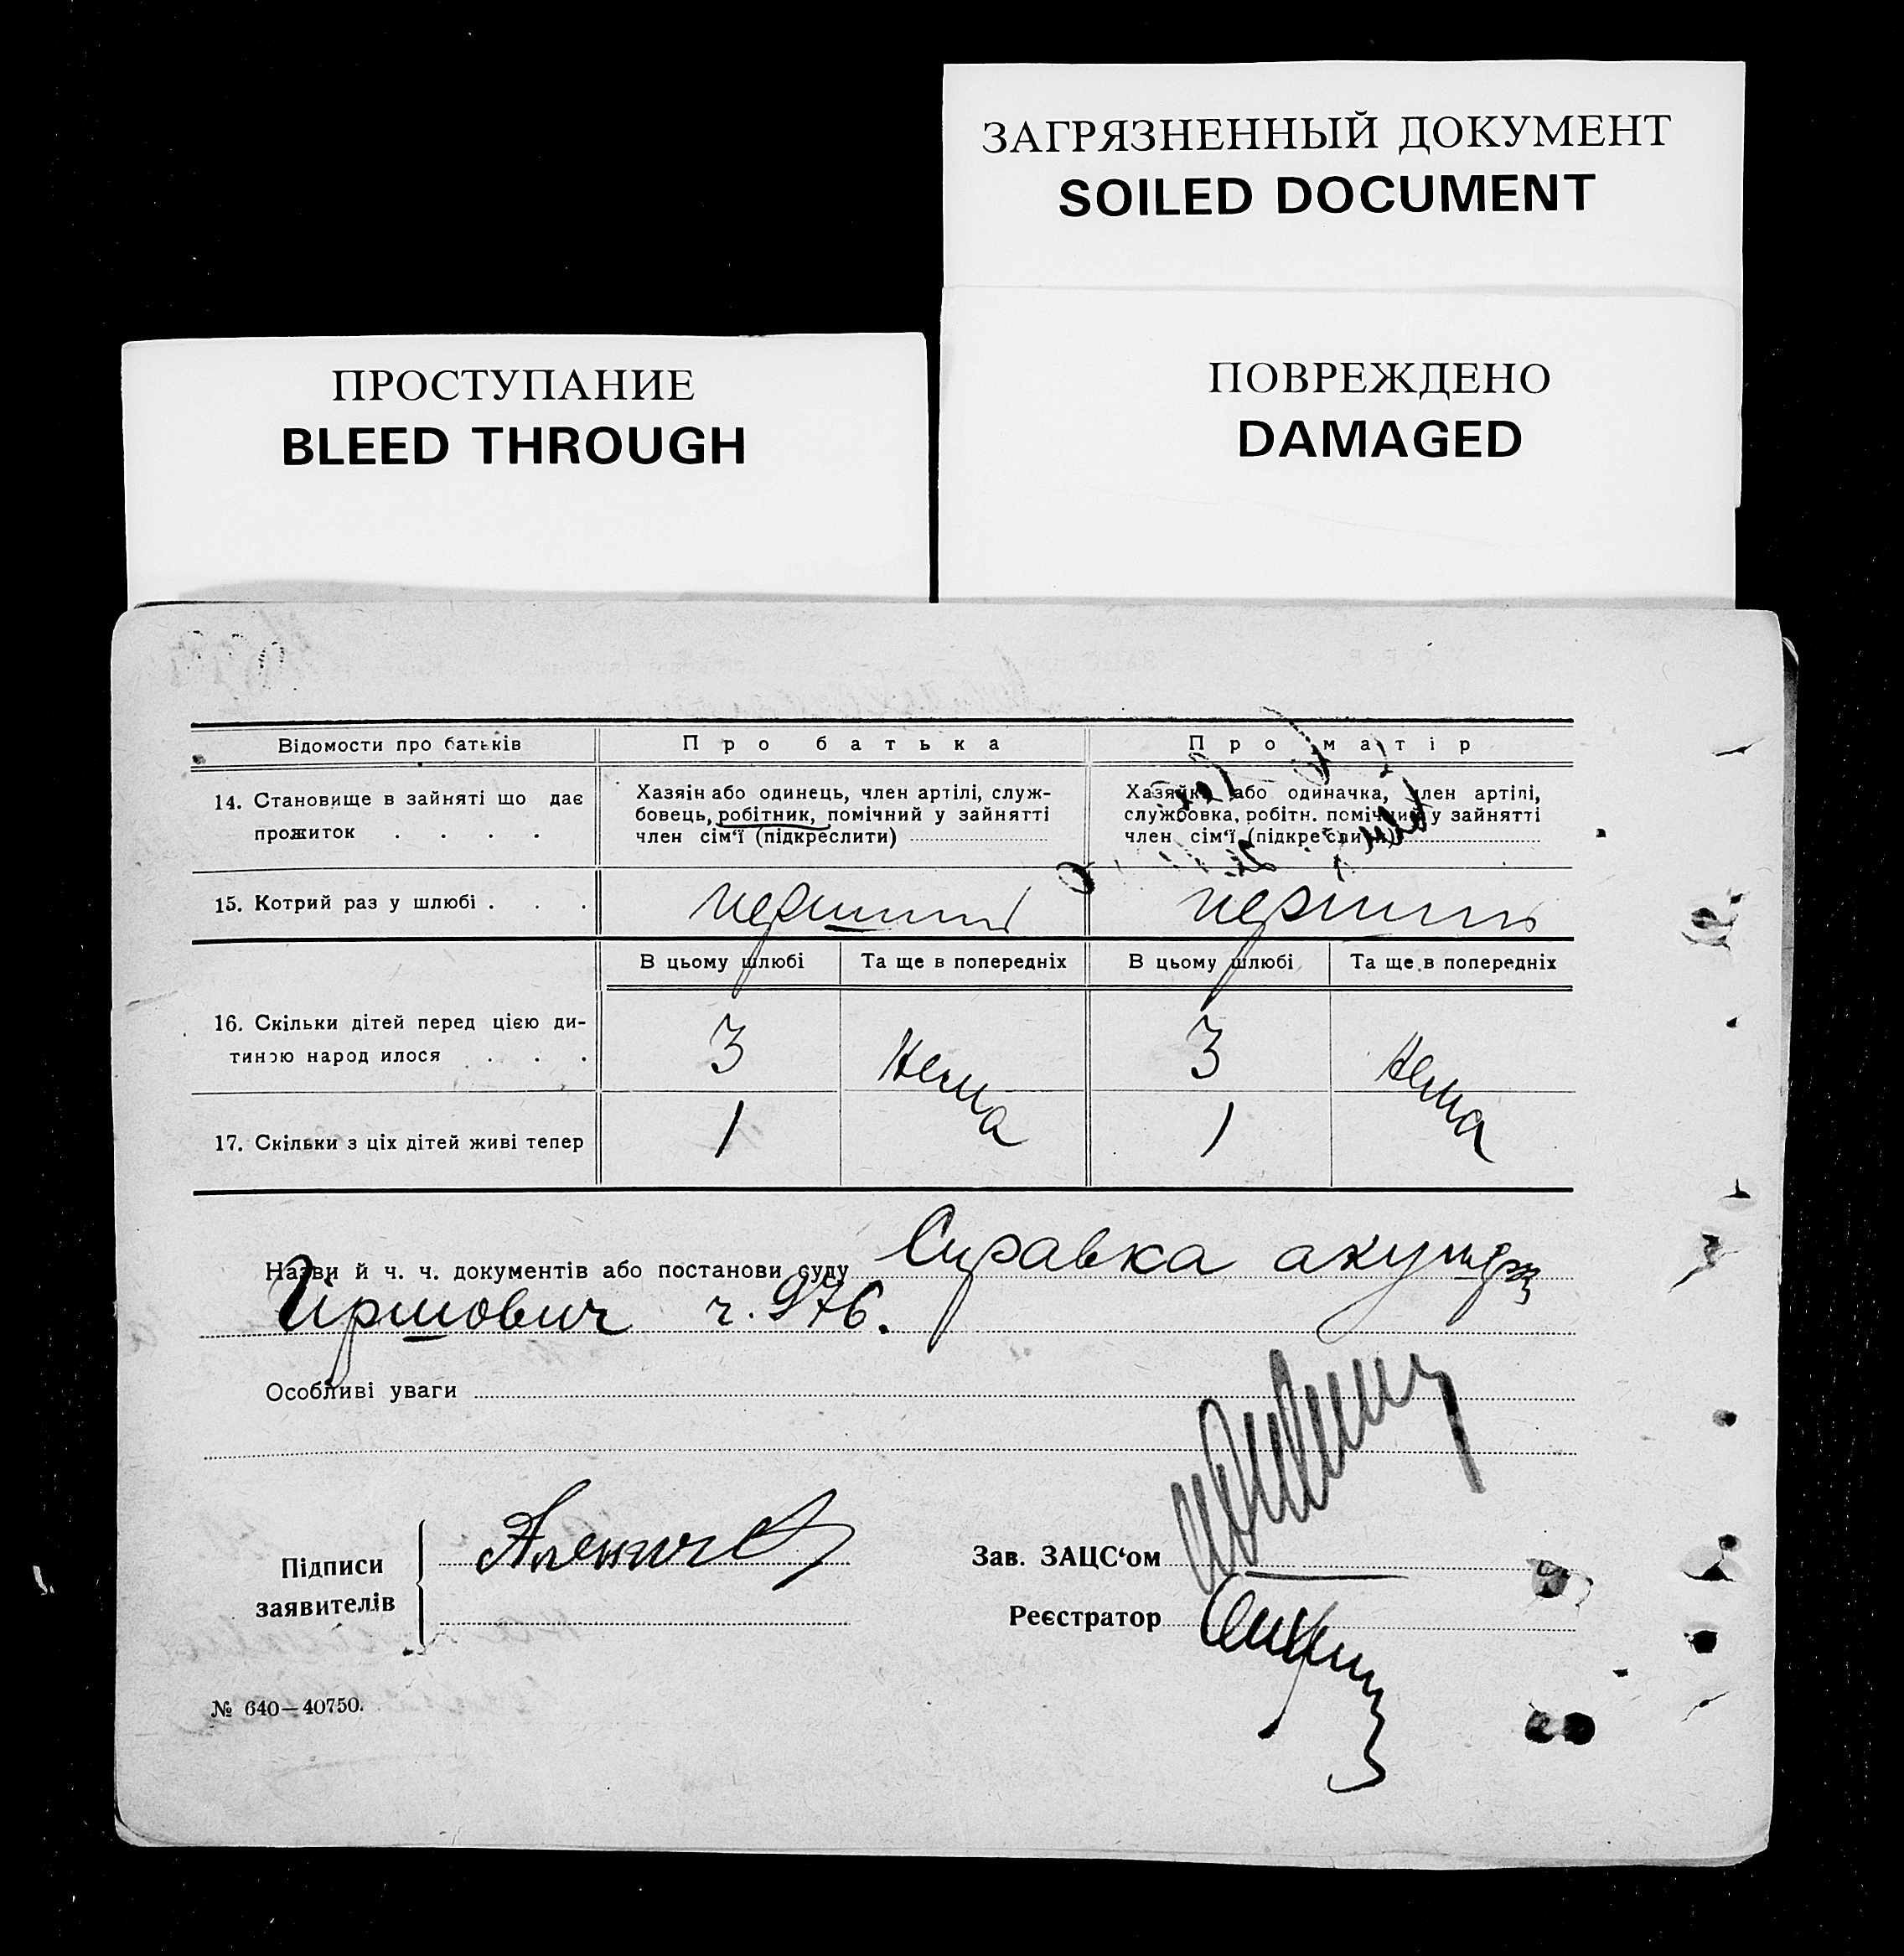 ЗАГРЯЗНЕННЫЙ ДОКУМЕНТ
SOILED DOCUMENT
ПРОСТУПАНИЕ
BLEED THROUGH
ПОВРЕЖДЕНО
DAMAGED
Відомости про батьків
Про батька
Про матір
14. Становище в зайняті що дає
прожиток . . . .
Хазяін або одинець, член артілі, служ-
бовець, робітник, помічний у зайнятті
член сім‘ї (підкреслити)
Хазяйка або одиначка, член артілі,
службовка, робітн. помічний у зайнятті
член сім‘ї (підкреслити)
15. Котрий раз у шлюбі . . .
перший
перший
В цьому шлюбі
Та ще в попередніх
В цьому шлюбі
Та ще в попередніх
16. Скільки дітей перед цією ди-
тиною народ илося . . .
3
Нема
3
Нема
17. Скільки з ціх дітей живі тепер
1
1
Назви й ч. ч. документів або постанови суду Справка акушерк
Гіршович ч. 976.
Особливі уваги
Підписи
заявителів
Зав. ЗАЦС‘ом
Реєстратор
№ 640—40750.